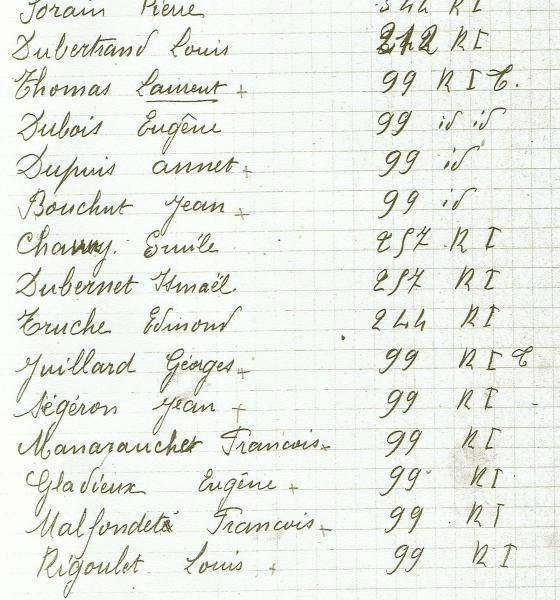 Sorain Pierre 344 R I
Dubertrand Louis 242 R I
Thomas Laurent + 99 R I T.
Dubois Eugène 99 id id
Dupuis annet + 99 id
Bouchut Jean + 99 id
Emile 257 R I
Dubernet Ismaël 257 R I
Truche Edmond 244 R I
Juillard Géorges + 99 R I T
Ségéron Jean + 99 R I
Manaranchet Francois + 99 R I
Gladieux Eugène + 99 R I
Malfondeté Francois + 99 R I
Rigoulet Louis + 99 R I